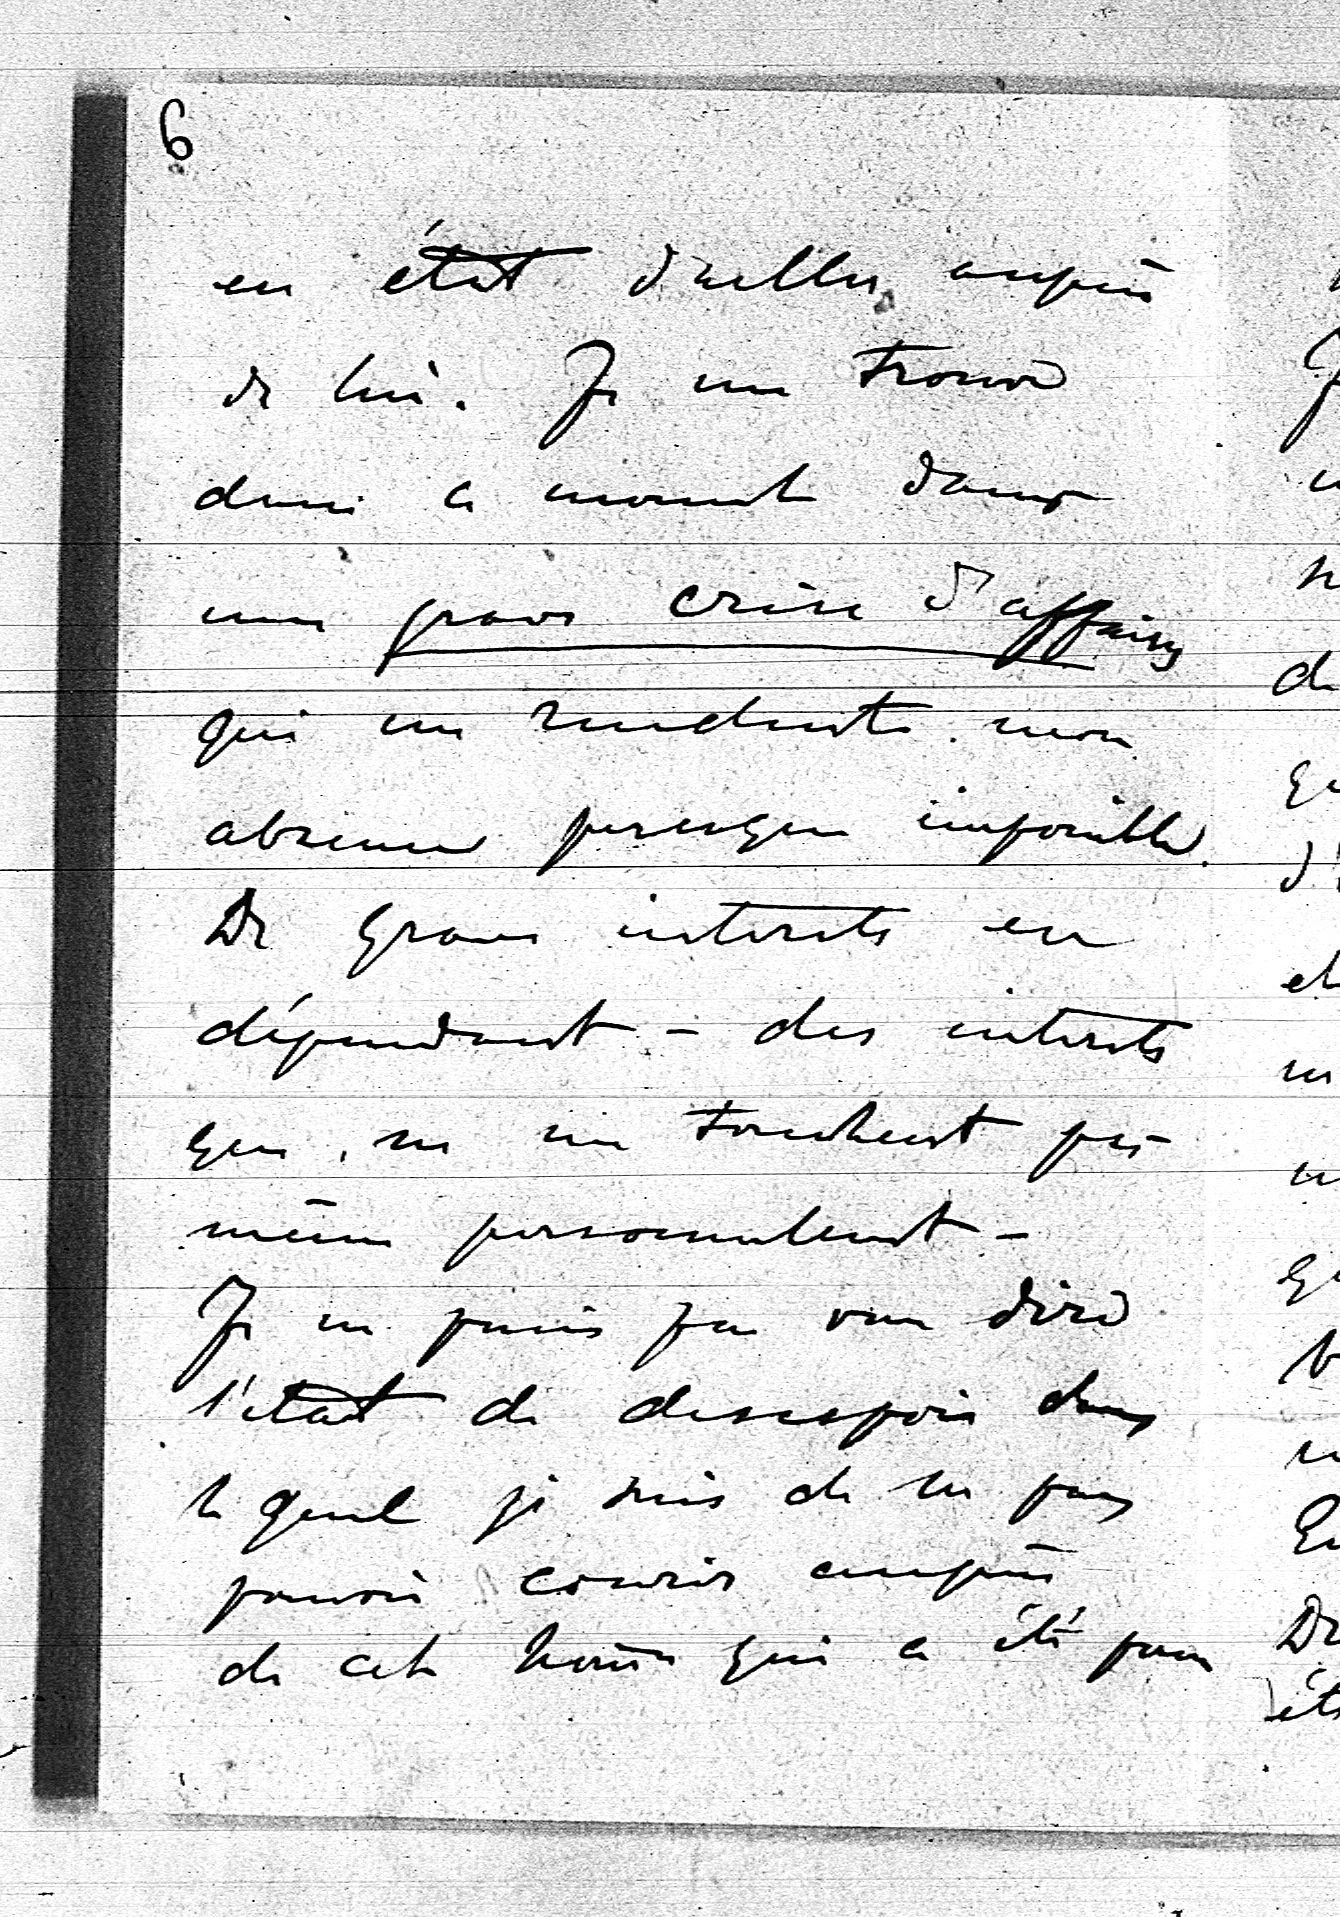 6
en état d'aller auprès
de lui. Je me trouve
dans ce moment dans
une grave crise d'affaires
qui me rendent mon
absence presque impossible.
De graves interets en
dépendent – des interets
qui ne me touchent pas
même personnellement –
Je ne puis pas vous dire
l'état de desespoir dans
lequel je suis de ne pas
pouvoir courir auprès
de cet homme qui a été pour